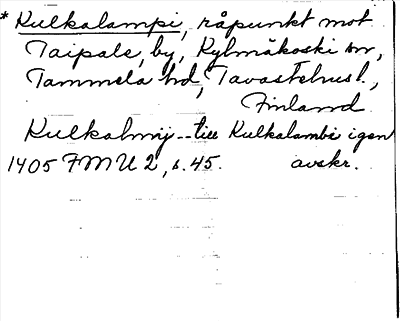 * Kulkalampi, råpunkt mot
Taipale, by, Kylmäkoski sn,
Tammela hd, Tavastehusl.,
Finland
Kulkalmij -- till Kulkalambi igen
1405 FMU 2, s. 45. avskr.